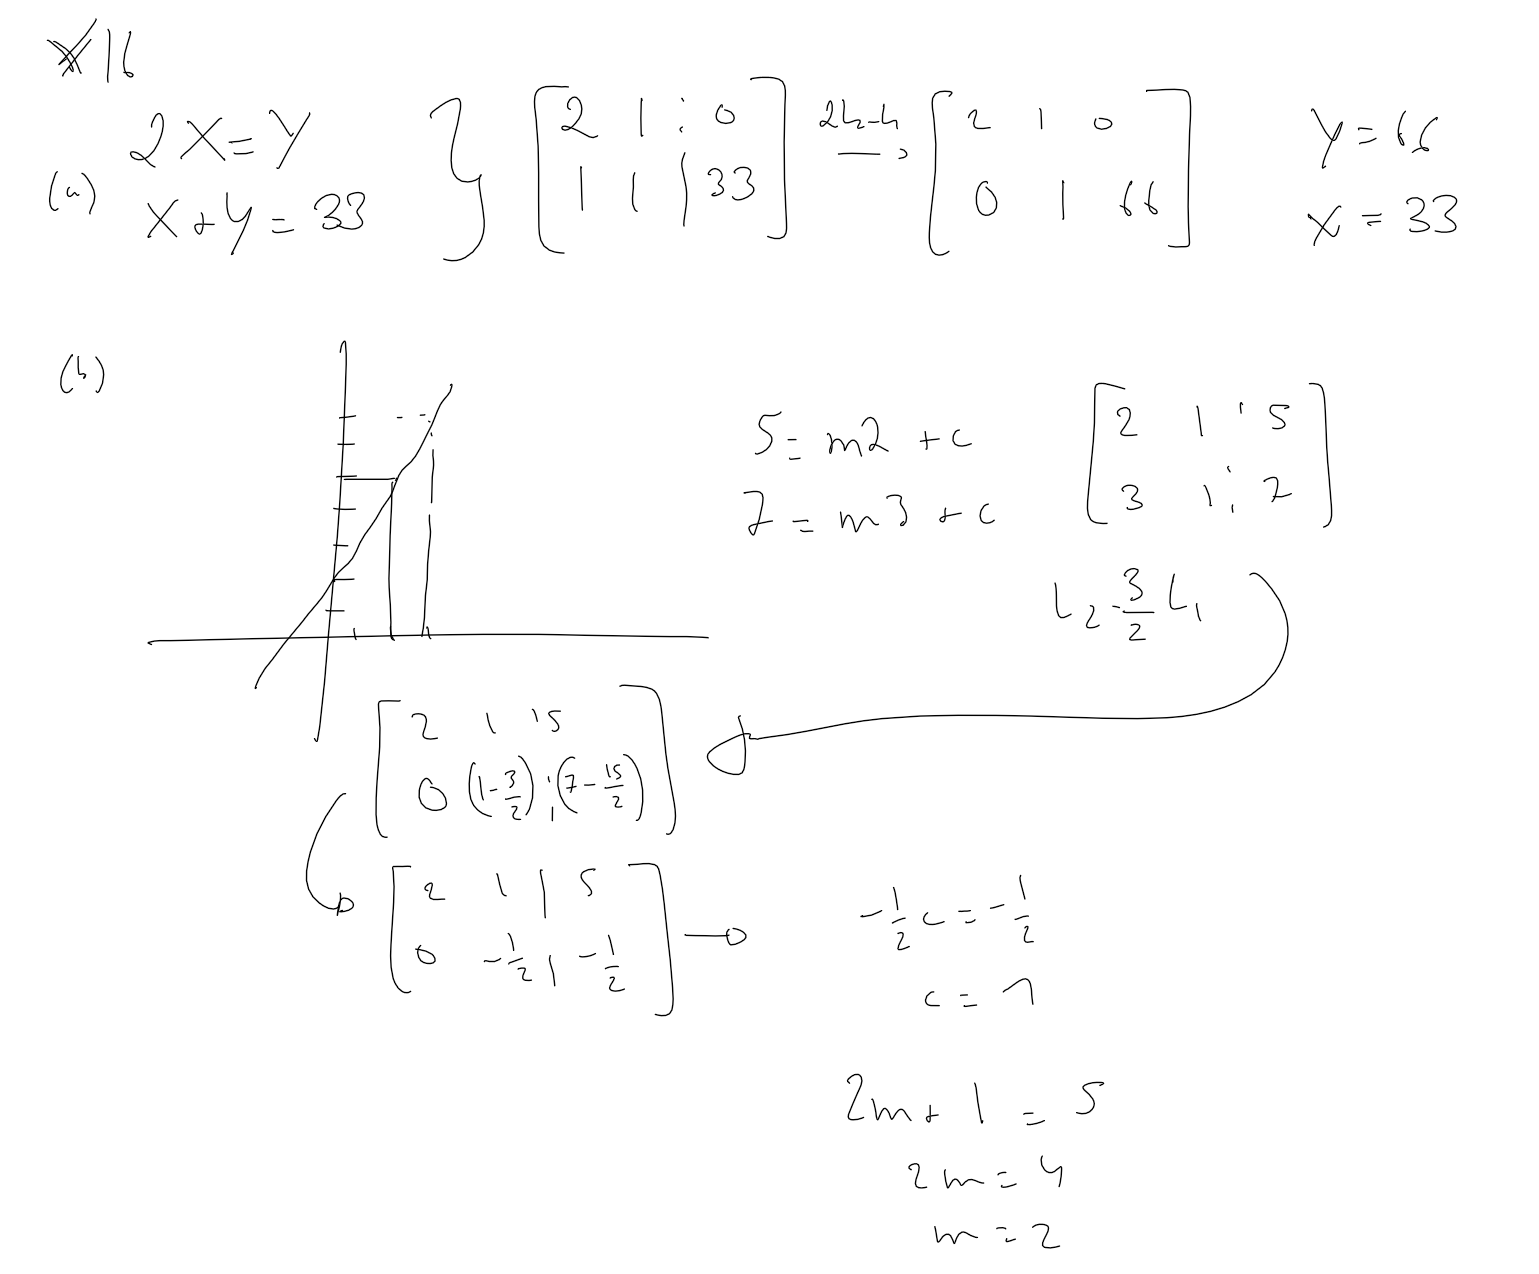 *16
(a) 2X = Y
X + Y = 33
} [2 1 ⋮ 0
1 1 | 33] 2L₂-L₁ → [2 1 0
0 1 66]
y = 66
x = 33
(b)
5 = m2 + c
7 = m3 + c
[2 1 ¦ 5
3 1 ¦ 7]
L₂ - 3/2 L₁
[2 1 ¦ 5
0 (1 - 3/2) ¦ (7 - 15/2)]
[2 1 | 5
0 -1/2 | -1/2] →
-1/2 c = -1/2
c = 1
2m + 1 = 5
2m = 4
m = 2